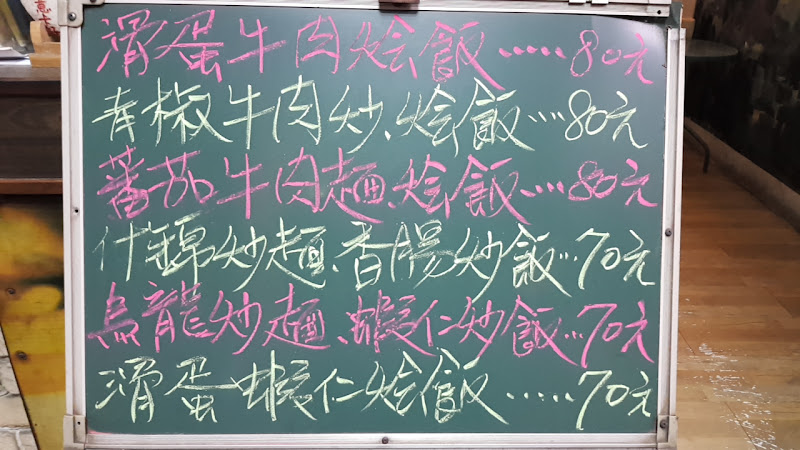 滑蛋牛肉燴飯.....80元
青椒牛肉炒、燴飯....80元
蕃茄牛肉麵、燴飯....80元
什錦炒麵、香腸炒飯...70元
烏龍炒麵、蝦仁炒飯...70元
滑蛋蝦仁燴飯.....70元